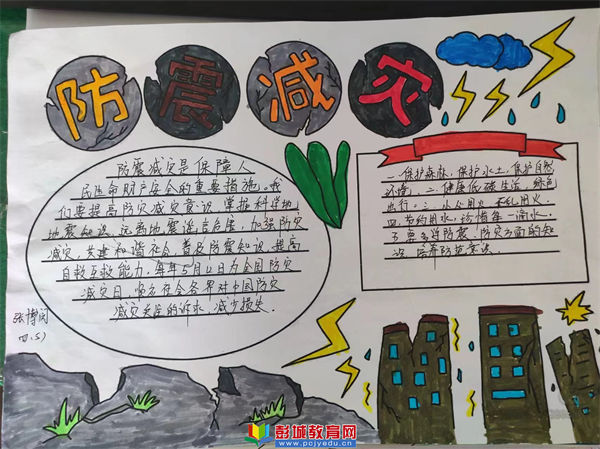 防震减灾
防震减灾是保障人
民生命财产安全的重要措施。我
们要提高防灾减灾意识,掌握科学地
地震知识,远离地震造击危害,加强防灾
减灾,共建和谐社会,普及防震知识,提高
自救互救能力,每年5月12日为全国防灾
减灾日,响应社会各界对中国防灾
减灾关注的诉求,减少损失.
一.保护森林,保护水土,保护自然
环境。二.健康低碳生活,绿色
出行。三.从公用火,不乱用火。
四.节约用水,珍惜每一滴水。
防震、防灾方面的知
识,培养防范意识。
张博闵
四.(5)
彭城教育网
www.pcjyedu.cn